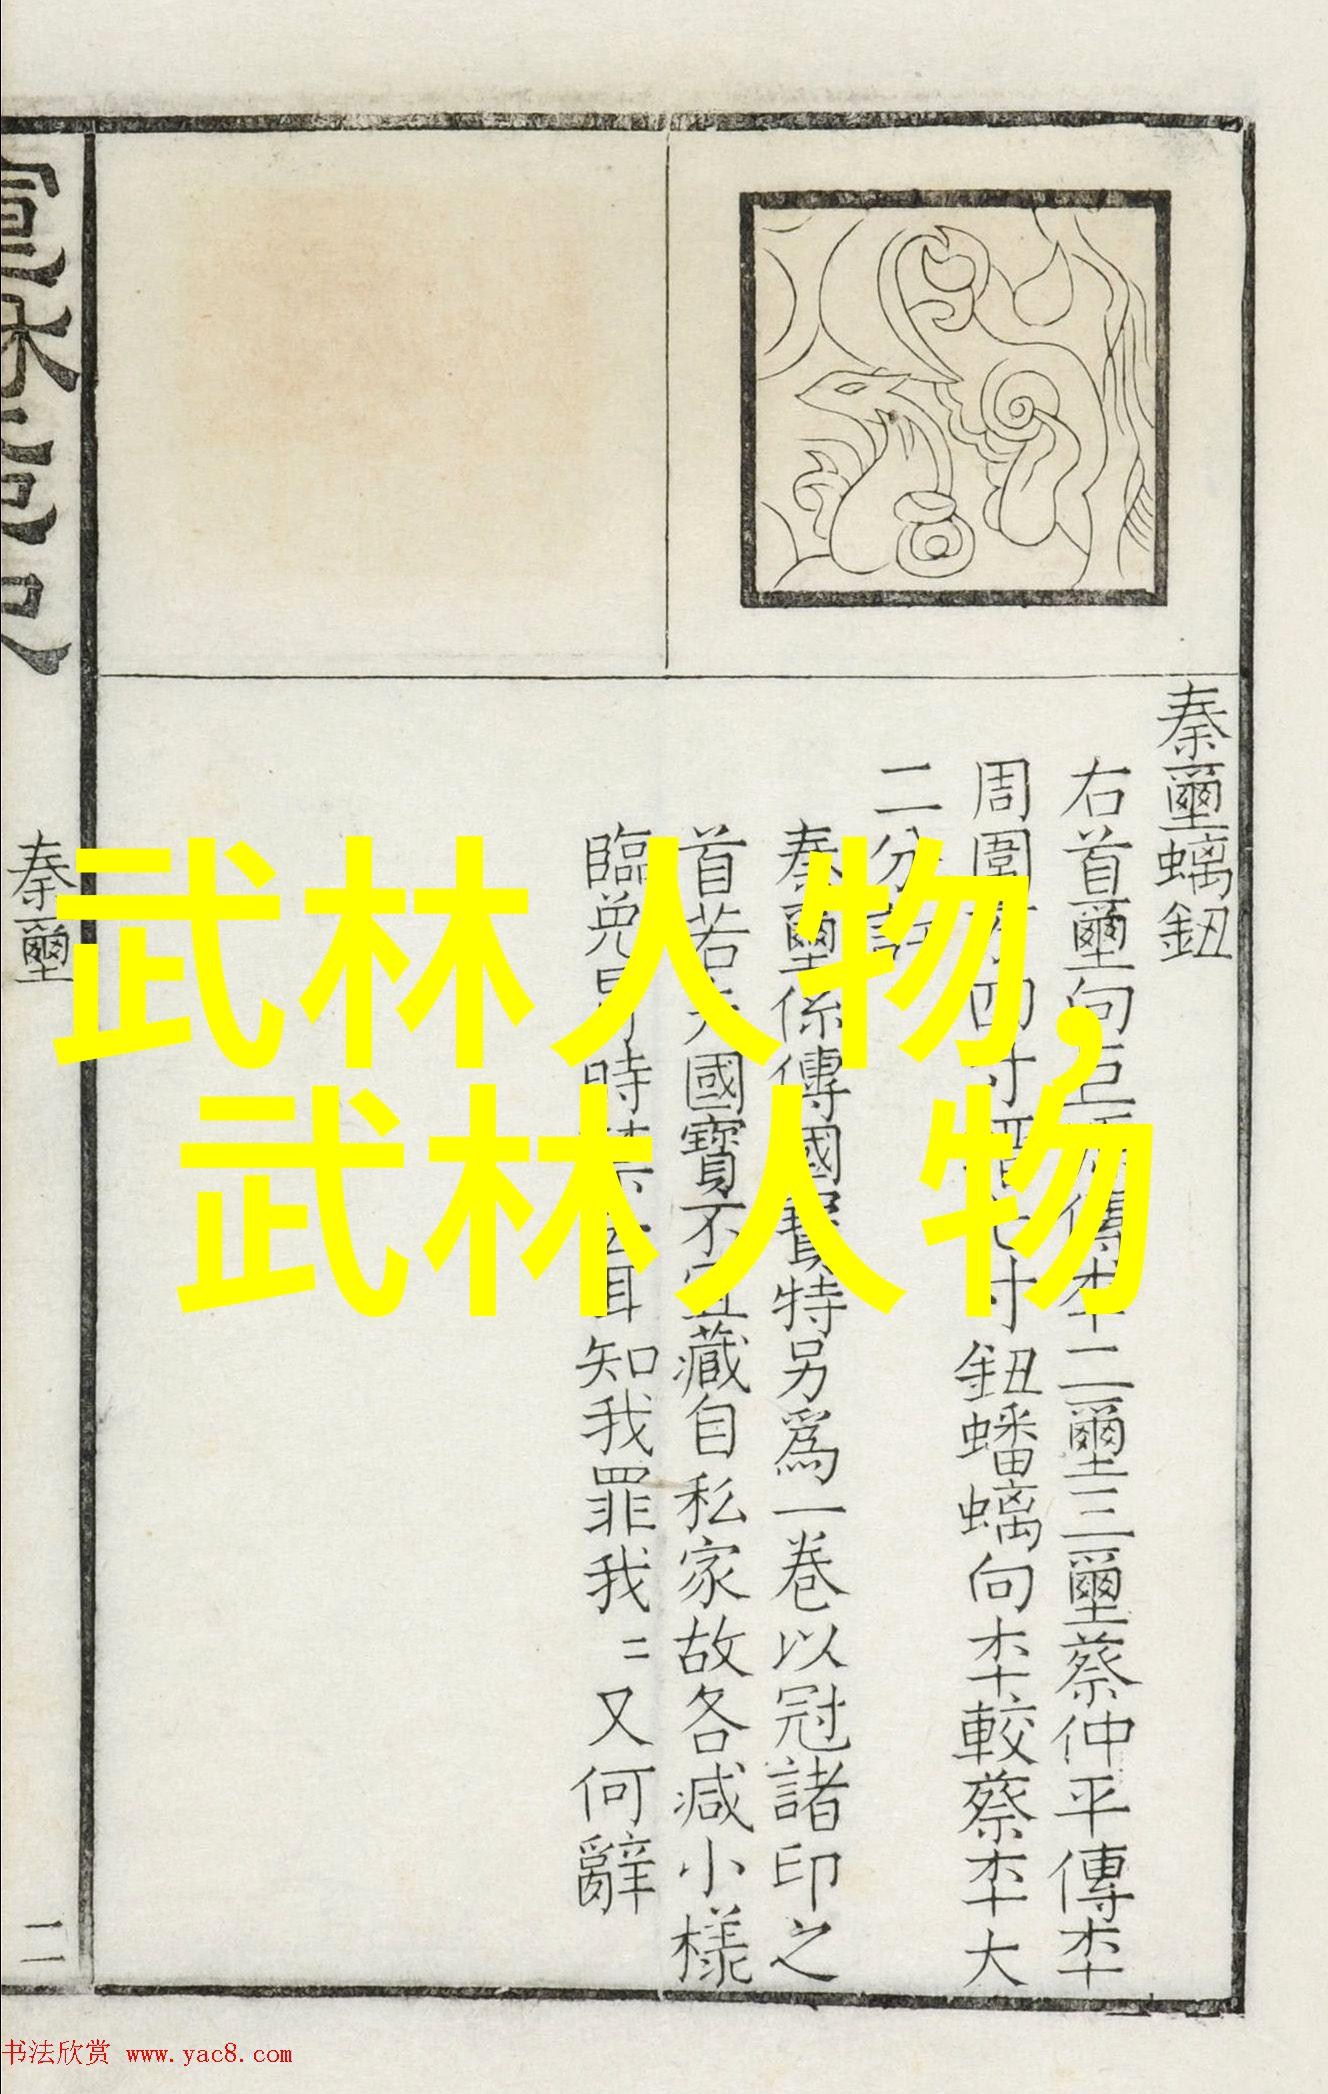 武林人物,
武林人物
秦璽螭鈕
右首璽向巨
傳本二璽三璽蔡仲平傳本
周圍
四寸
寸鈕蟠螭向本較蔡本大
二分
秦璽係傳國寶特另爲一卷以冠諸印之
首若
國寶不宜藏自私家故各减小樣
臨
時
耳知我罪我〻又何辭
秦璽
二
书法欣赏 www.yac8.com